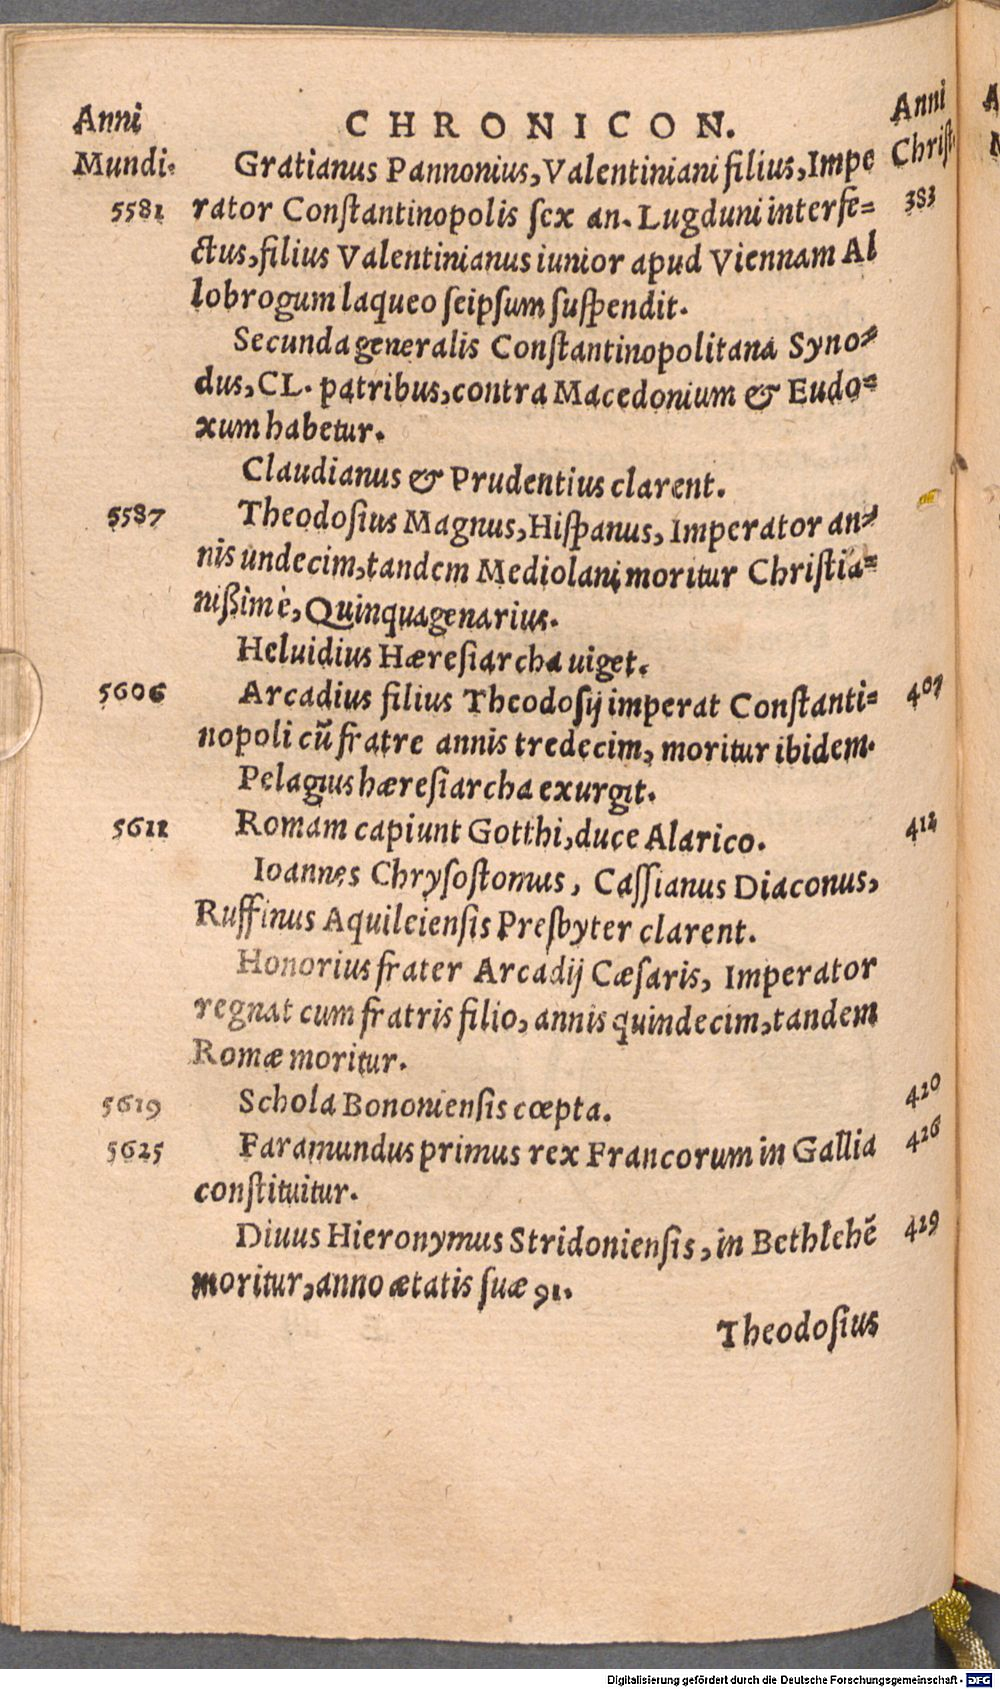 Anni CHRONICON. Anni
Mundi. Gratianus Pannonius, Valentiniani filius, Impe Christ.
5581 rator Conſtantinopolis ſex an. Lugduni interfe= 383
ctus, filius Valentinianus iunior apud Viennam Al
lobrogum laqueo ſeipſum ſuſpendit.
Secunda generalis Conſtantinopolitana Syno=
dus, CL. patribus, contra Macedonium & Eudo=
xum habetur.
Claudianus & Prudentius clarent.
5587 Theodoſius Magnus, Hiſpanus, Imperator an=
nis undecim, tandem Mediolani moritur Chriſtia=
nißimè, Quinquagenarius.
Heluidius Hæreſiarcha uiget.
5606 Arcadius filius Theodoſij imperat Conſtanti= 407
nopoli cū fratre annis tredecim, moritur ibidem.
Pelagius hæreſiarcha exurgit.
5611 Romam capiunt Gotthi, duce Alarico. 412
Ioannes Chryſoſtomus, Caſſianus Diaconus,
Ruffinus Aquileienſis Preſbyter clarent.
Honorius frater Arcadij Cæſaris, Imperator
regnat cum fratris filio, annis quindecim, tandem
Romæ moritur.
5619 Schola Bononienſis cœpta. 420
5625 Faramundus primus rex Francorum in Gallia 426
conſtituitur.
Diuus Hieronymus Stridonienſis, in Bethlehē 429
moritur, anno ætatis ſuæ 91.
Theodoſius
Digitalisierung gefördert durch die Deutsche Forschungsgemeinschaft - DFG